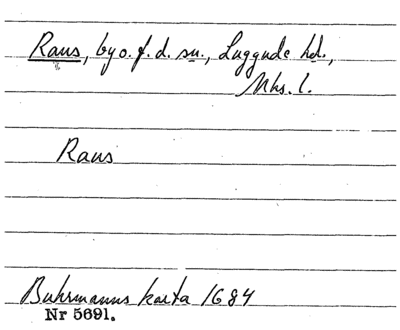 Raus, by o. f. d. sn., Luggude hd.,
Mhs. l.
Raus
Buhrmanns karta 1684
Nr 5691.